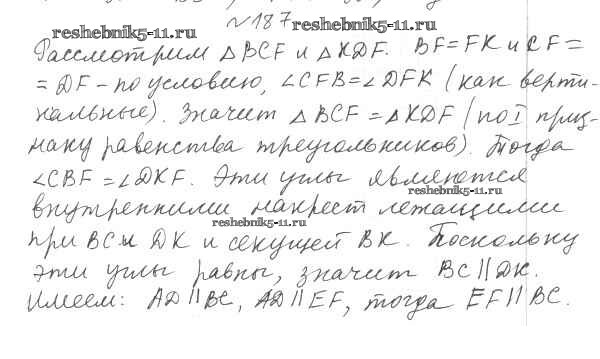 №187
reshebnik5-11.ru reshebnik5-11.ru
Рассмотрим △BCF и △KDF. BF=FK и CF=
=DF - по условию, ∠CFB=∠DFK (как верти-
кальные). Значит △BCF=△KDF (по I приз-
наку равенства треугольников). Тогда
∠CBF=∠DKF. Эти углы являются
reshebnik5-11.ru
внутренними накрест лежащими
reshebnik5-11.ru
при BC и DK и секущей BK. Поскольку
эти углы равны, значит BC||DK.
Имеем: AD||BC, AD||EF, тогда EF||BC.